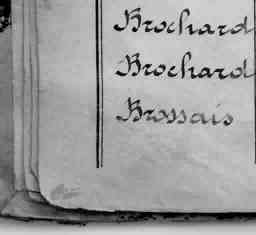 Brochard
Brochard
Brossais